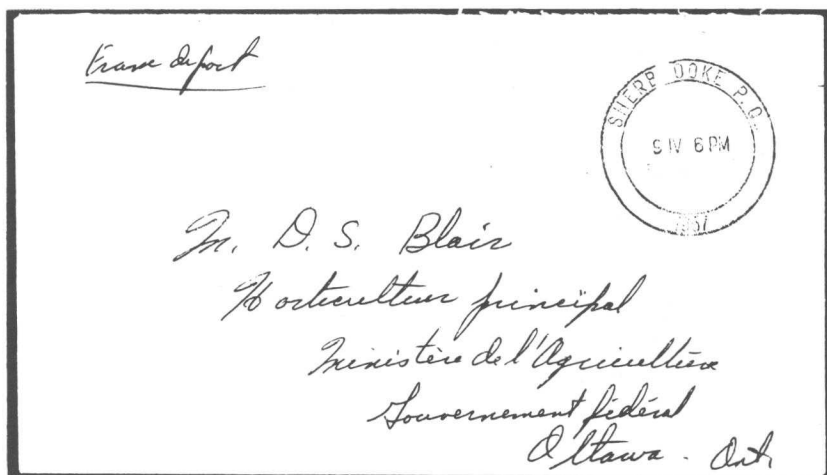 Franc de port
SHERB OOKE P.Q.
9 IV 6 PM
1957
M. D. S. Blair
Horticulteur principal
Ministère de l'Agriculture
Gouvernement fédéral
Ottawa. Ont.